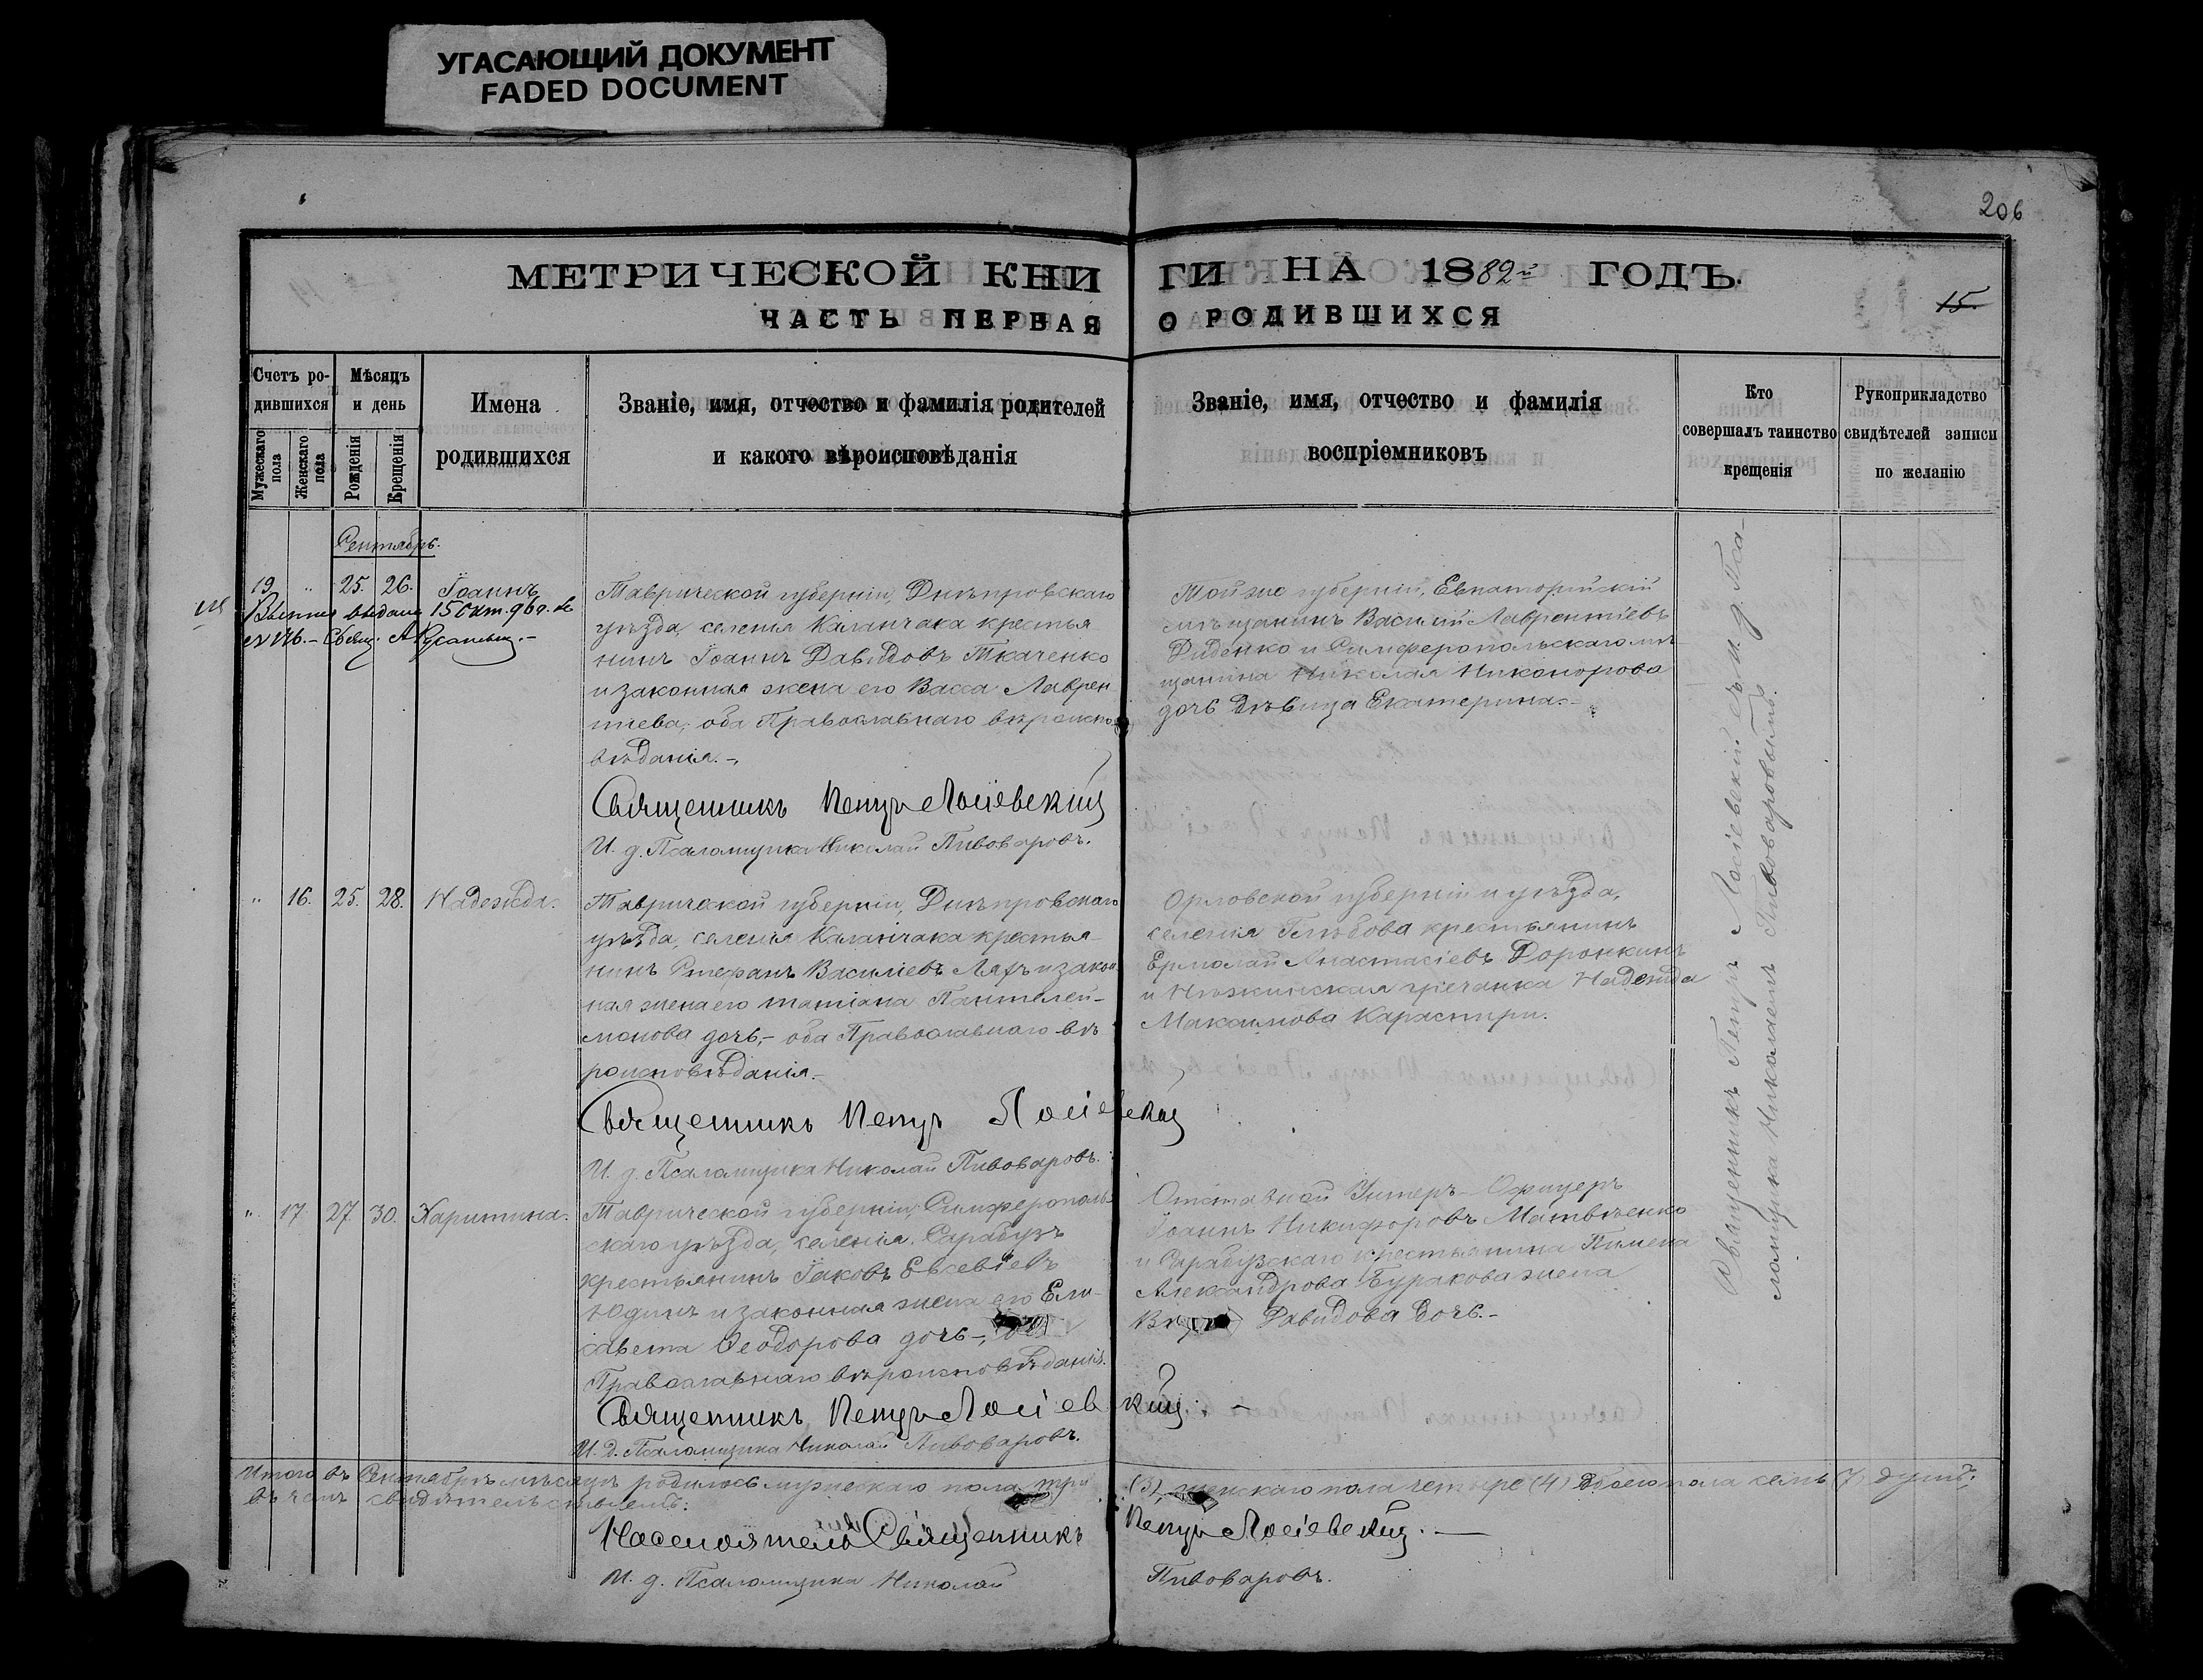 УГАСАЮЩИЙ ДОКУМЕНТ
FADED DOCUMENT
206
МЕТРИЧЕСКОЙ КНИГИ НА 1882й ГОДЪ.
15.
ЧАСТЬ ПЕРВАЯ О РОДИВШИХСЯ
Счетъ родившихся
Мужескаго пола
Женскаго пола
Мѣсяцъ и день
Рожденія
Крещенія
Имена родившихся
Званіе, имя, отчество и фамилія родителей
и какого вѣроисповѣданія
Званіе, имя, отчество и фамилія
воспріемниковъ
Кто
совершалъ таинство
крещенія
Рукоприкладство
свидѣтелей записи
по желанію
Сентябрь.
19 " 25. 26. Іоаннъ
Выпись выдана 15 Окт. 909. за
№ 176. – Свящ.
Таврической губерніи, Днѣпровскаго
уѣзда, селенія Каланчака крестья
нинъ Іоаннъ Давидовъ Ткаченко
и законная жена его Васса Лаврен
тіева, оба Православнаго вѣроиспо
вѣданія. –
Священникъ Петръ Лосіевскій
И. д. Псаломщика Николай Пивоваровъ.
Той же губерніи, Евпаторійскій
мѣщанинъ Василій Лаврентіевъ
Диденко и Симферопольскаго мѣ
щанина Николая Никонорова
дочь дѣвица Екатерина. –
" 16. 25. 28. Надежда.
Таврической губерніи, Днѣпровскаго
уѣзда, селенія Каланчака крестья–
нинъ Стефанъ Василіевъ Ляхъ и закон
ная жена его Татіана Пантелей–
монова дочь, – оба Православнаго вѣ
роисповѣданія. –
Священникъ Петръ Лосіевскій
И. д. Псаломщика Николай Пивоваровъ.
Орловской губерніи и уѣзда,
селенія Глѣбова крестьянинъ
Ермолай Анастасіевъ Доронкинъ
и Нѣжинская гречанка Надежда
Максимова Карастири.
" 17. 27. 30. Харитина.
Таврической губерніи, Симферополь
скаго уѣзда, селенія Сарабузъ
крестьянинъ Іаковъ Евсевіевъ
Юдинъ и законная жена его Ели–
савета Ѳеодорова дочь –, оба
Православнаго вѣроисповѣданія.
Священникъ Петръ Лосіевскій. –
И. Д. Псаломщика Николай Пивоваровъ.
Отставной Унтеръ–Офицеръ
Іоаннъ Никифоровъ Матвѣенко
и Сарабузскаго крестьянина Пимена
Александрова Буракова жена
Давидова дочь. –
Священникъ Петръ Лосіевскій съ и. д. Пса–
ломщика Николаемъ Пивоваровымъ.
Итого въ Сентябрѣ мѣсяцѣ родилось мужескаго пола три (3), женскаго пола четыре (4) обоего пола семь (7) душъ.
Въ чемъ свидѣтельствуемъ:
Настоятель Священникъ Петръ Лосіевскій. –
И. д. Псаломщика Николай Пивоваровъ.